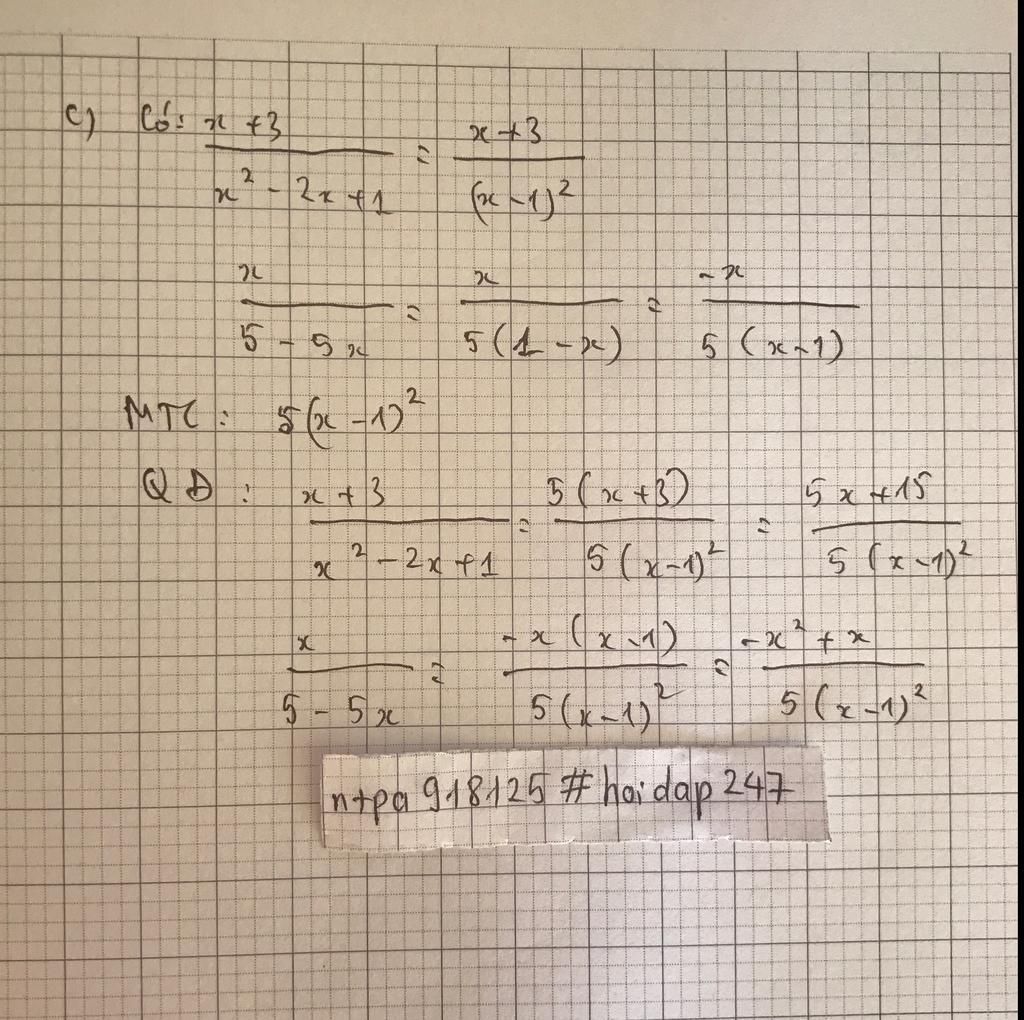 c) Có: x + 3 / x² - 2x + 1 = x + 3 / (x - 1)²
x / 5 - 5x = x / 5(1 - x) = -x / 5(x - 1)
MTC: 5(x - 1)²
QĐ: x + 3 / x² - 2x + 1 = 5(x + 3) / 5(x - 1)² = 5x + 15 / 5(x - 1)²
x / 5 - 5x = -x(x - 1) / 5(x - 1)² = -x² + x / 5(x - 1)²
ntpa918125 # hoidap247